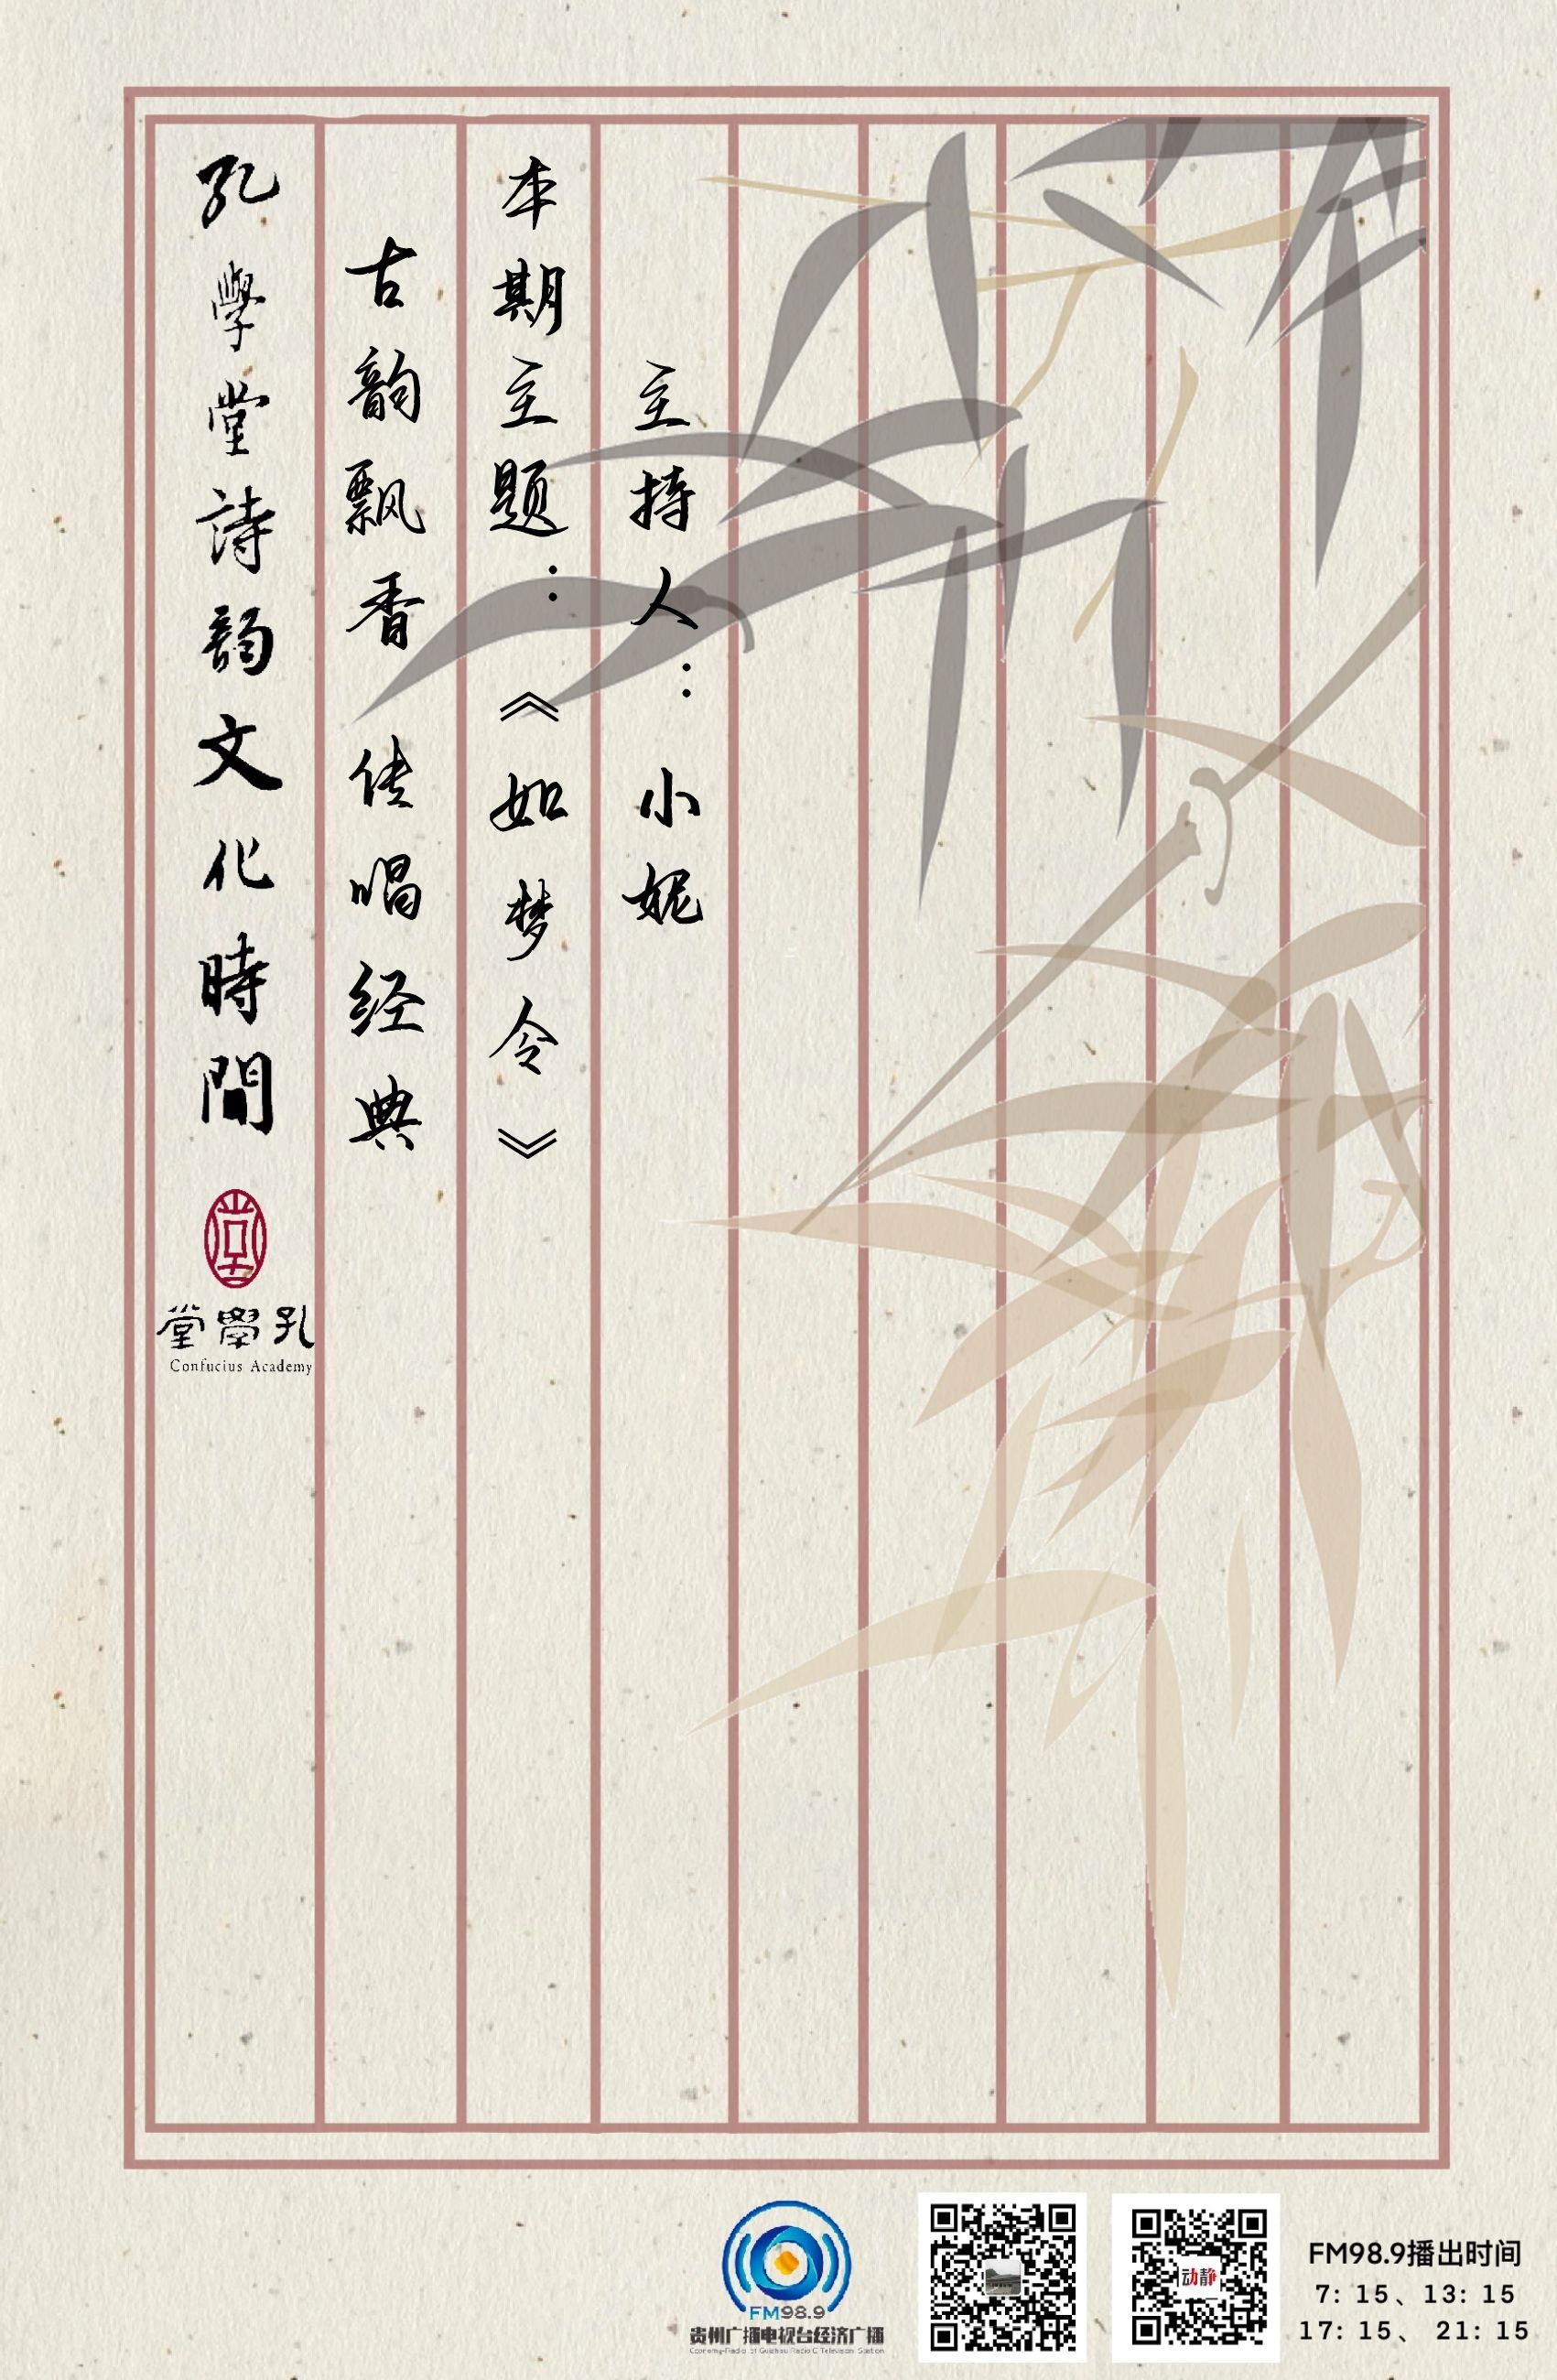 孔學堂詩韵文化時間
古韵飘香 传唱经典
本期主题：《如梦令》
主持人：小妮
堂學孔
Confucius Academy
FM98.9
贵州广播电视台经济广播
Economy-Radio of Guizhou Radio & Television Station
动静
FM98.9播出时间
7: 15、13: 15
17: 15、 21: 15